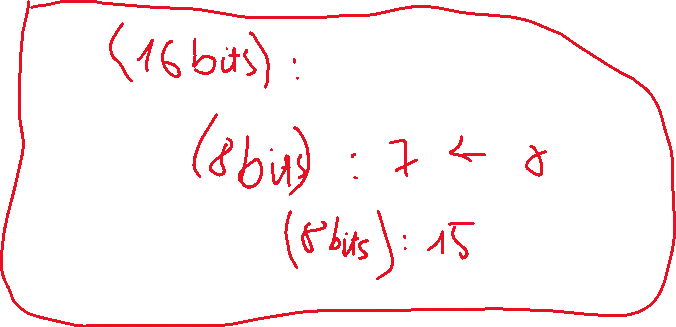 (16bits) :
(8bits) : 7 ← 8
(8bits) : 15